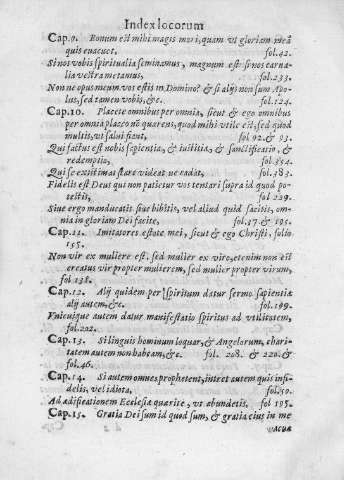 Index locorum
Cap. 9. Bonum est mihi magis mori, quam vt gloriam meā
quis euacuet, fol. 42.
Si nos vobis spiritualia seminamus, magnum est si nos carna-
lia vestra metamus, fol. 233.
Non ne opus meum vos estis in Domino? & si alijs non sum Apo-
lus, sed tamen vobis, &c. fol. 124.
Cap. 10. Placete omnibus per omnia, sicut & ego omnibus
per omnia placeo nō quærens, quod mihi vtile est, sed quod
multis, vt salui fiant, fol. 92. & 93.
Qui factus est nobis sapientia, & iustitia, & sanctificatio, &
redemptio, fol. 354.
Qui se existimat stare videat ne cadat, fol. 383.
Fidelis est Deus qui non patietur vos tentari supra id quod po-
testis, fol. 239.
Siue ergo manducatis siue bibitis, vel aliud quid facitis, om-
nia in gloriam Dei facite, fol. 37. & 195.
Cap. 11. Imitatores estote mei, sicut & ego Christi, folio
155.
Non vir ex muliere est, sed mulier ex viro, etenim non est
creatus vir propter mulierem, sed mulier propter virum,
fol. 138.
Cap. 12. Alij quidem per spiritum datur sermo sapientiæ
alij autem, &c. fol. 199.
Vnicuique autem datur manifestatio spiritus ad vtilitatem,
fol. 202.
Cap. 13. Si linguis hominum loquar, & Angelorum, chari-
tatem autem non habeam, &c. fol. 208. & 220. &
fol. 46.
Cap. 14. Si autem omnes prophetent, intret autem quis infi-
delis, vel idiota, fol. 50.
Ad ædificationem Ecclesiæ quærite, vt abundetis, fol. 195.
Cap. 15. Gratia Dei sum id quod sum, & gratia eius in me
vacua